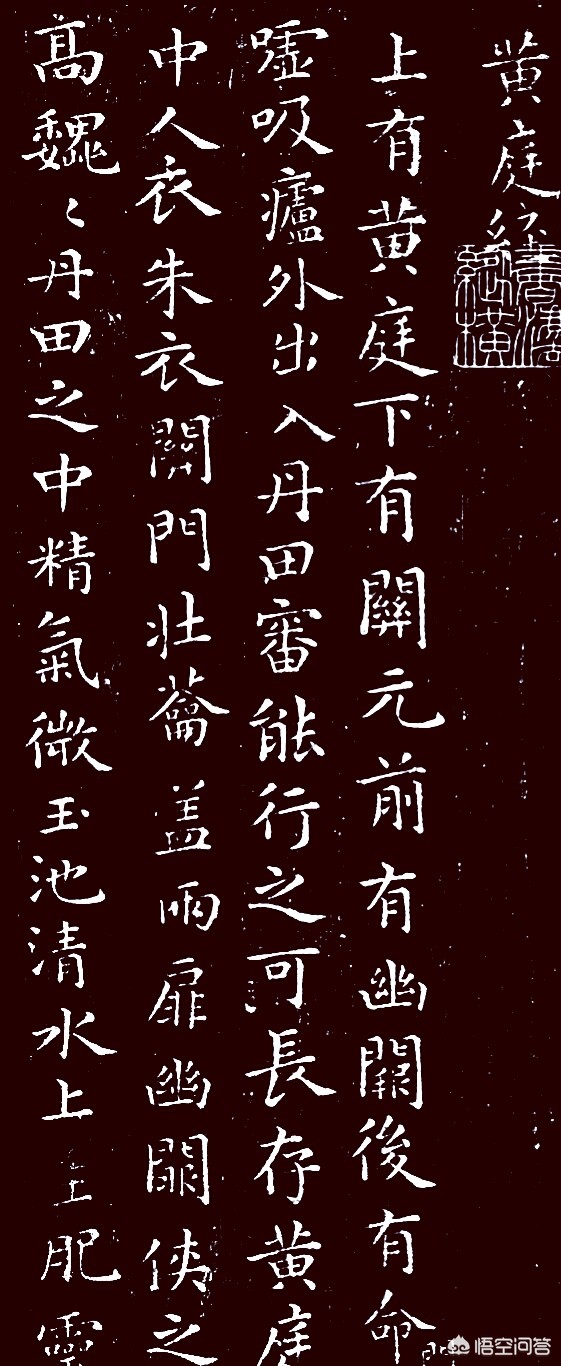 黄庭經
上有黄庭下有關元前有幽闕後有命
嘘吸廬外出入丹田審能行之可長存黄庭
中人衣朱衣關門壯蘥盖兩扉幽闕俠之
髙巍〻丹田之中精氣微玉池清水上生肥靈
悟空问答